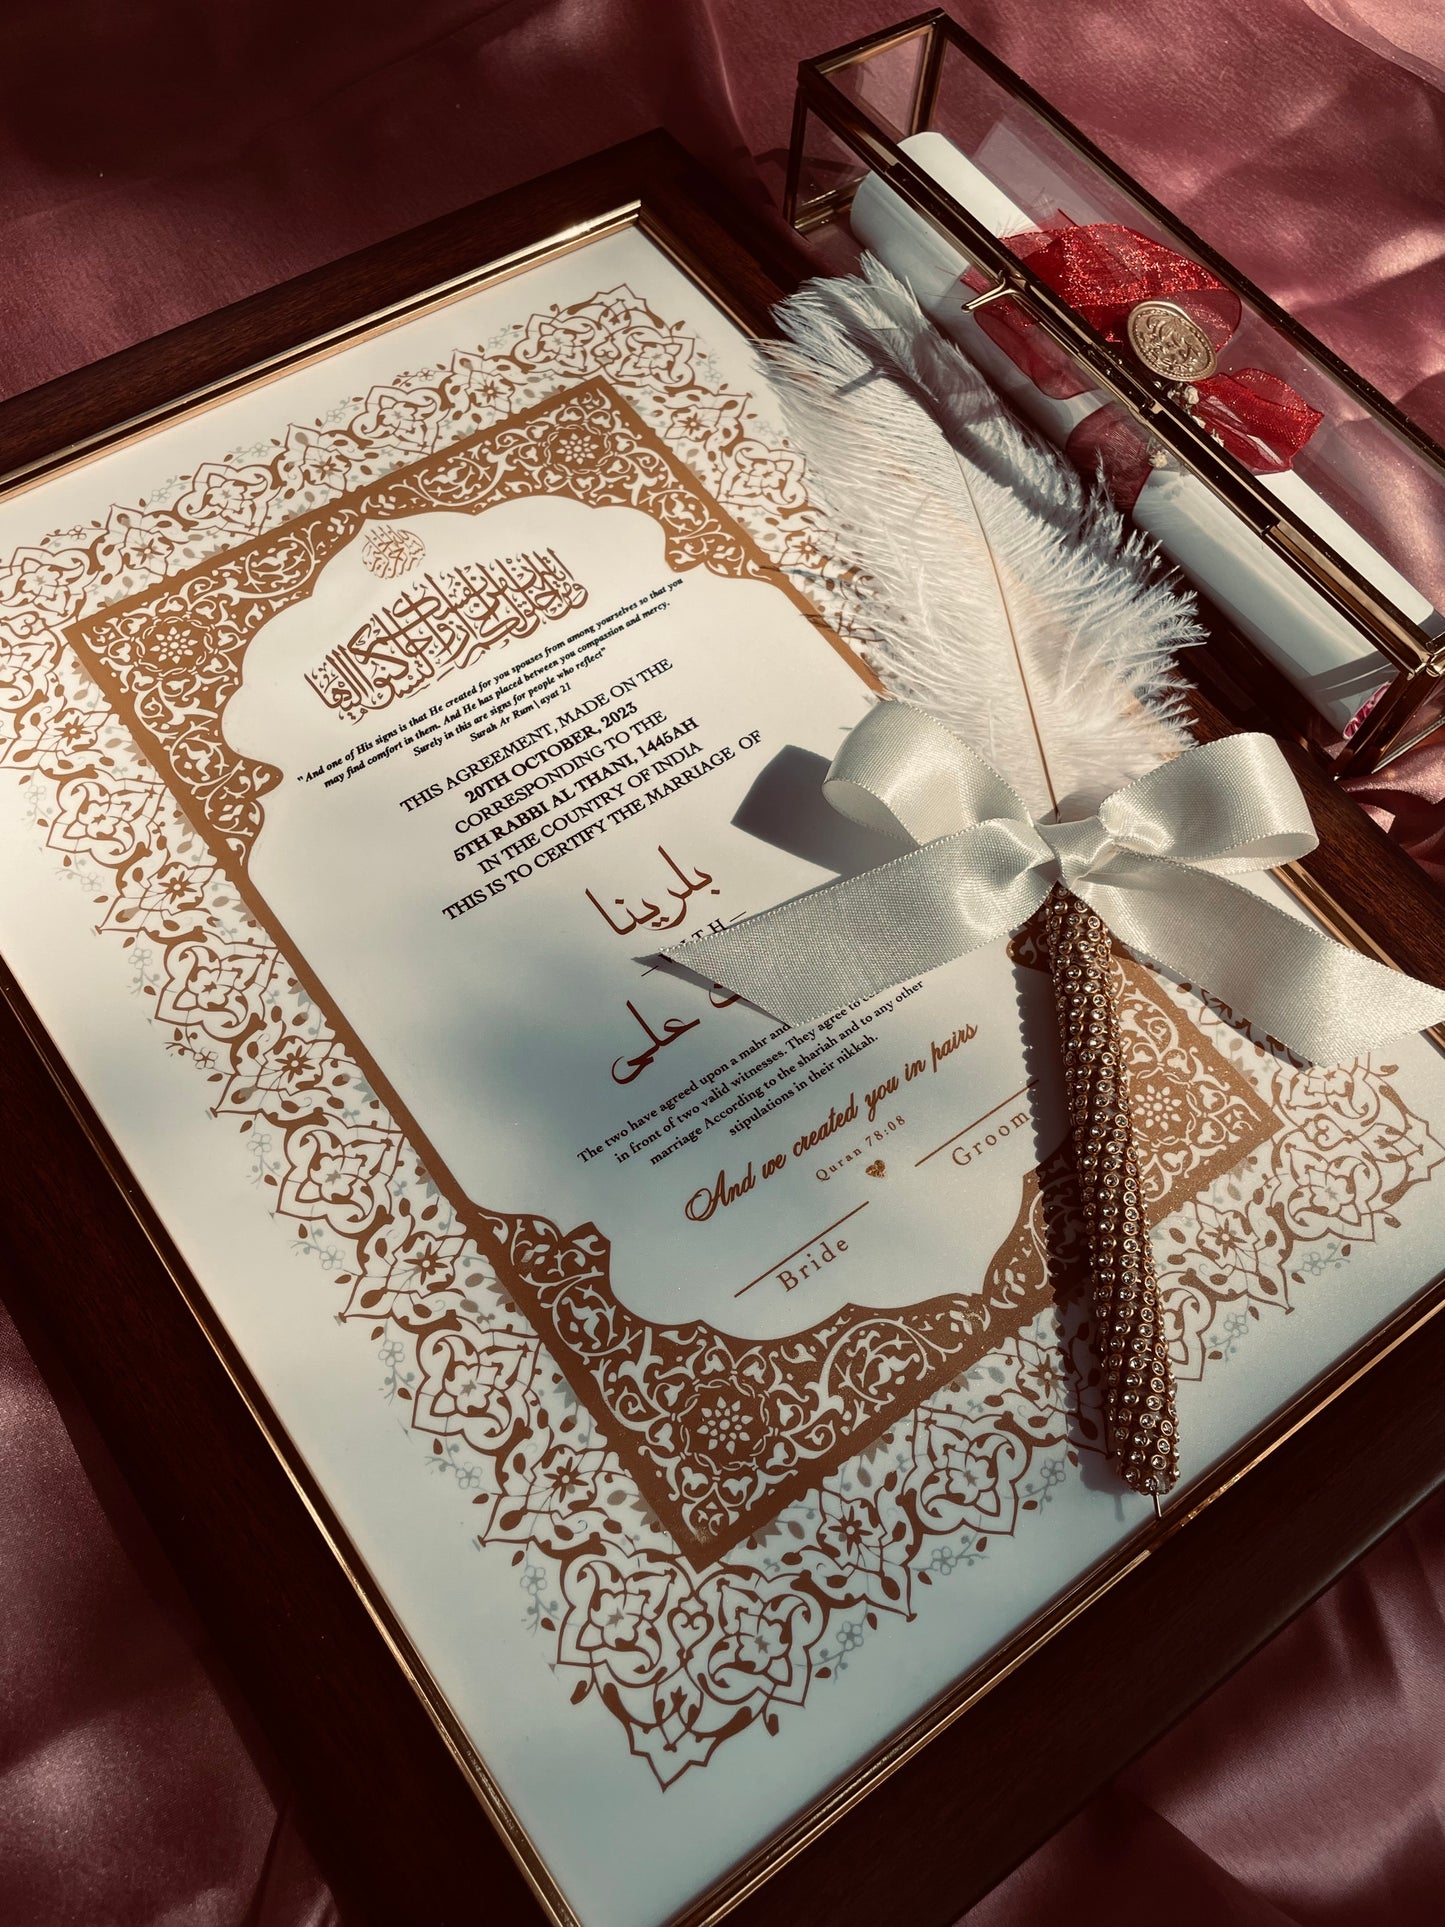 "And one of His signs is that He created for you spouses from among yourselves so that you
may find comfort in them. And He has placed between you compassion and mercy.
Surely in this are signs for people who reflect"
Surah Ar Rum | ayat 21
THIS AGREEMENT, MADE ON THE
20TH OCTOBER, 2023
CORRESPONDING TO THE
5TH RABBI AL THANI, 1445AH
IN THE COUNTRY OF INDIA
THIS IS TO CERTIFY THE MARRIAGE OF
بلرينا
علی
The two have agreed upon a mahr and
in front of two valid witnesses. They agree to
marriage According to the shariah and to any other
stipulations in their nikkah.
And we created you in pairs
Quran 78:08
Bride
Groom